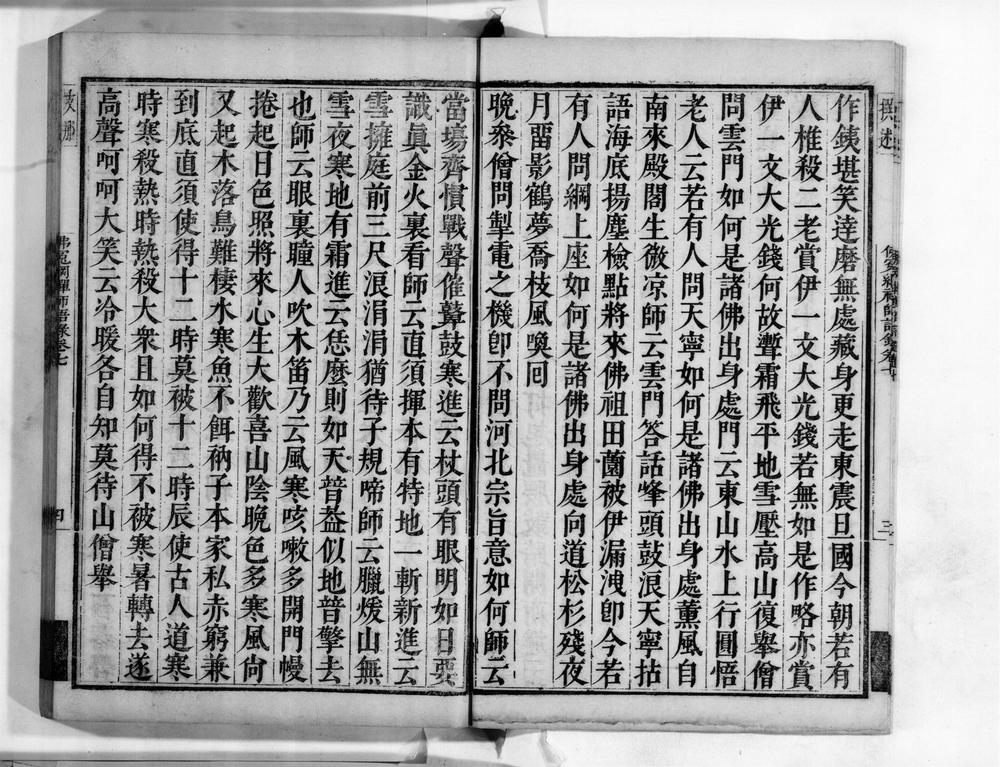 作銕堪笑達磨無處藏身更走東震旦國今朝若有
人椎殺二老賞伊一文大光錢若無如是作略亦賞
伊一文大光錢何故聻霜飛平地雪壓高山復舉僧
問雲門如何是諸佛出身處門云東山水上行圓悟
老人云若有人問天寧如何是諸佛出身處薰風自
南來殿閣生微凉師云雲門答話峰頭鼓浪天寧拈
語海底揚塵檢點將來佛祖田薗被伊漏洩卽今若
有人問綱上座如何是諸佛出身處向道松杉殘夜
月畱影鶴夢喬枝風喚囘
晚參僧問掣電之機卽不問河北宗旨意如何師云
當塲齊慣戰聲催鼙鼓寒進云杖頭有眼明如日要
識眞金火裏看師云直須揮本有特地一斬新進云
雪擁庭前三尺浪涓涓猶待子規啼師云臘煖山無
雪夜寒地有霜進云恁麼則如天普葢似地普擎去
也師云眼裏瞳人吹木笛乃云風寒咳嗽多開門幔
捲起日色照將來心生大歡喜山陰晚色多寒風尙
又起木落鳥難棲水寒魚不餌衲子本家私赤窮兼
到底直須使得十二時莫被十二時辰使古人道寒
時寒殺熱時熱殺大衆且如何得不被寒暑轉去遂
高聲呵呵大笑云冷暖各自知莫待山僧舉
禪師語錄卷七
三
四